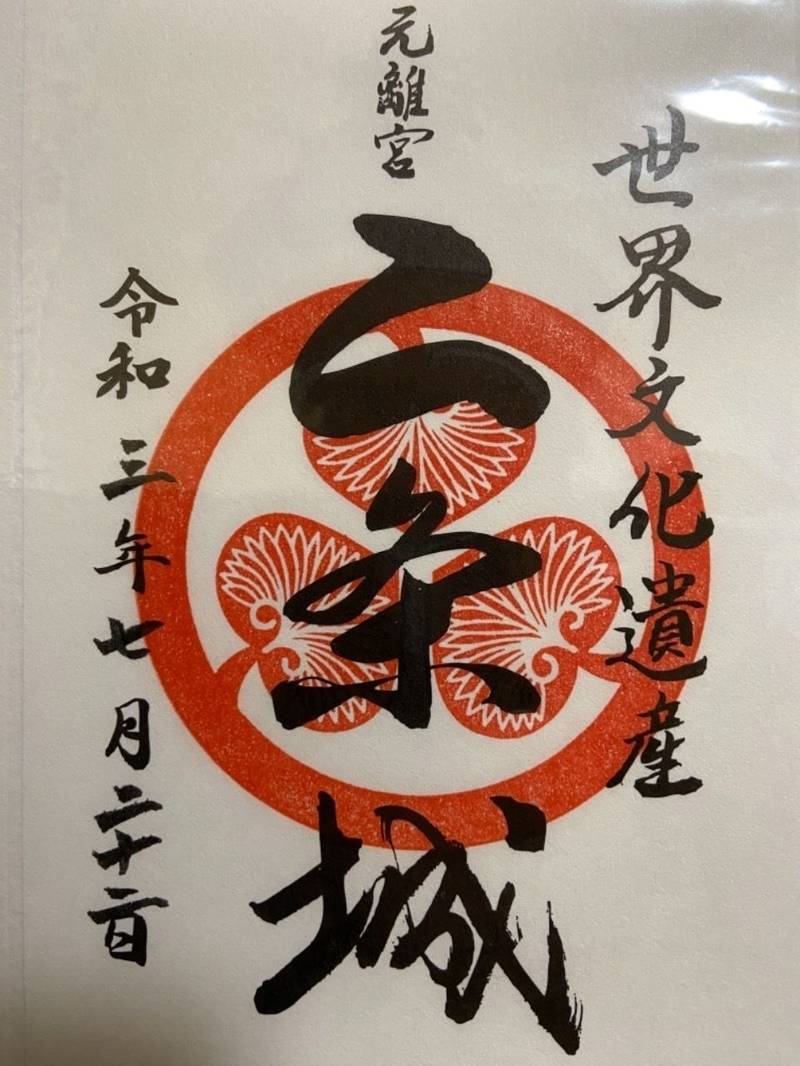 世界文化遺産
元離宮
二条城
令和三年七月二十二日